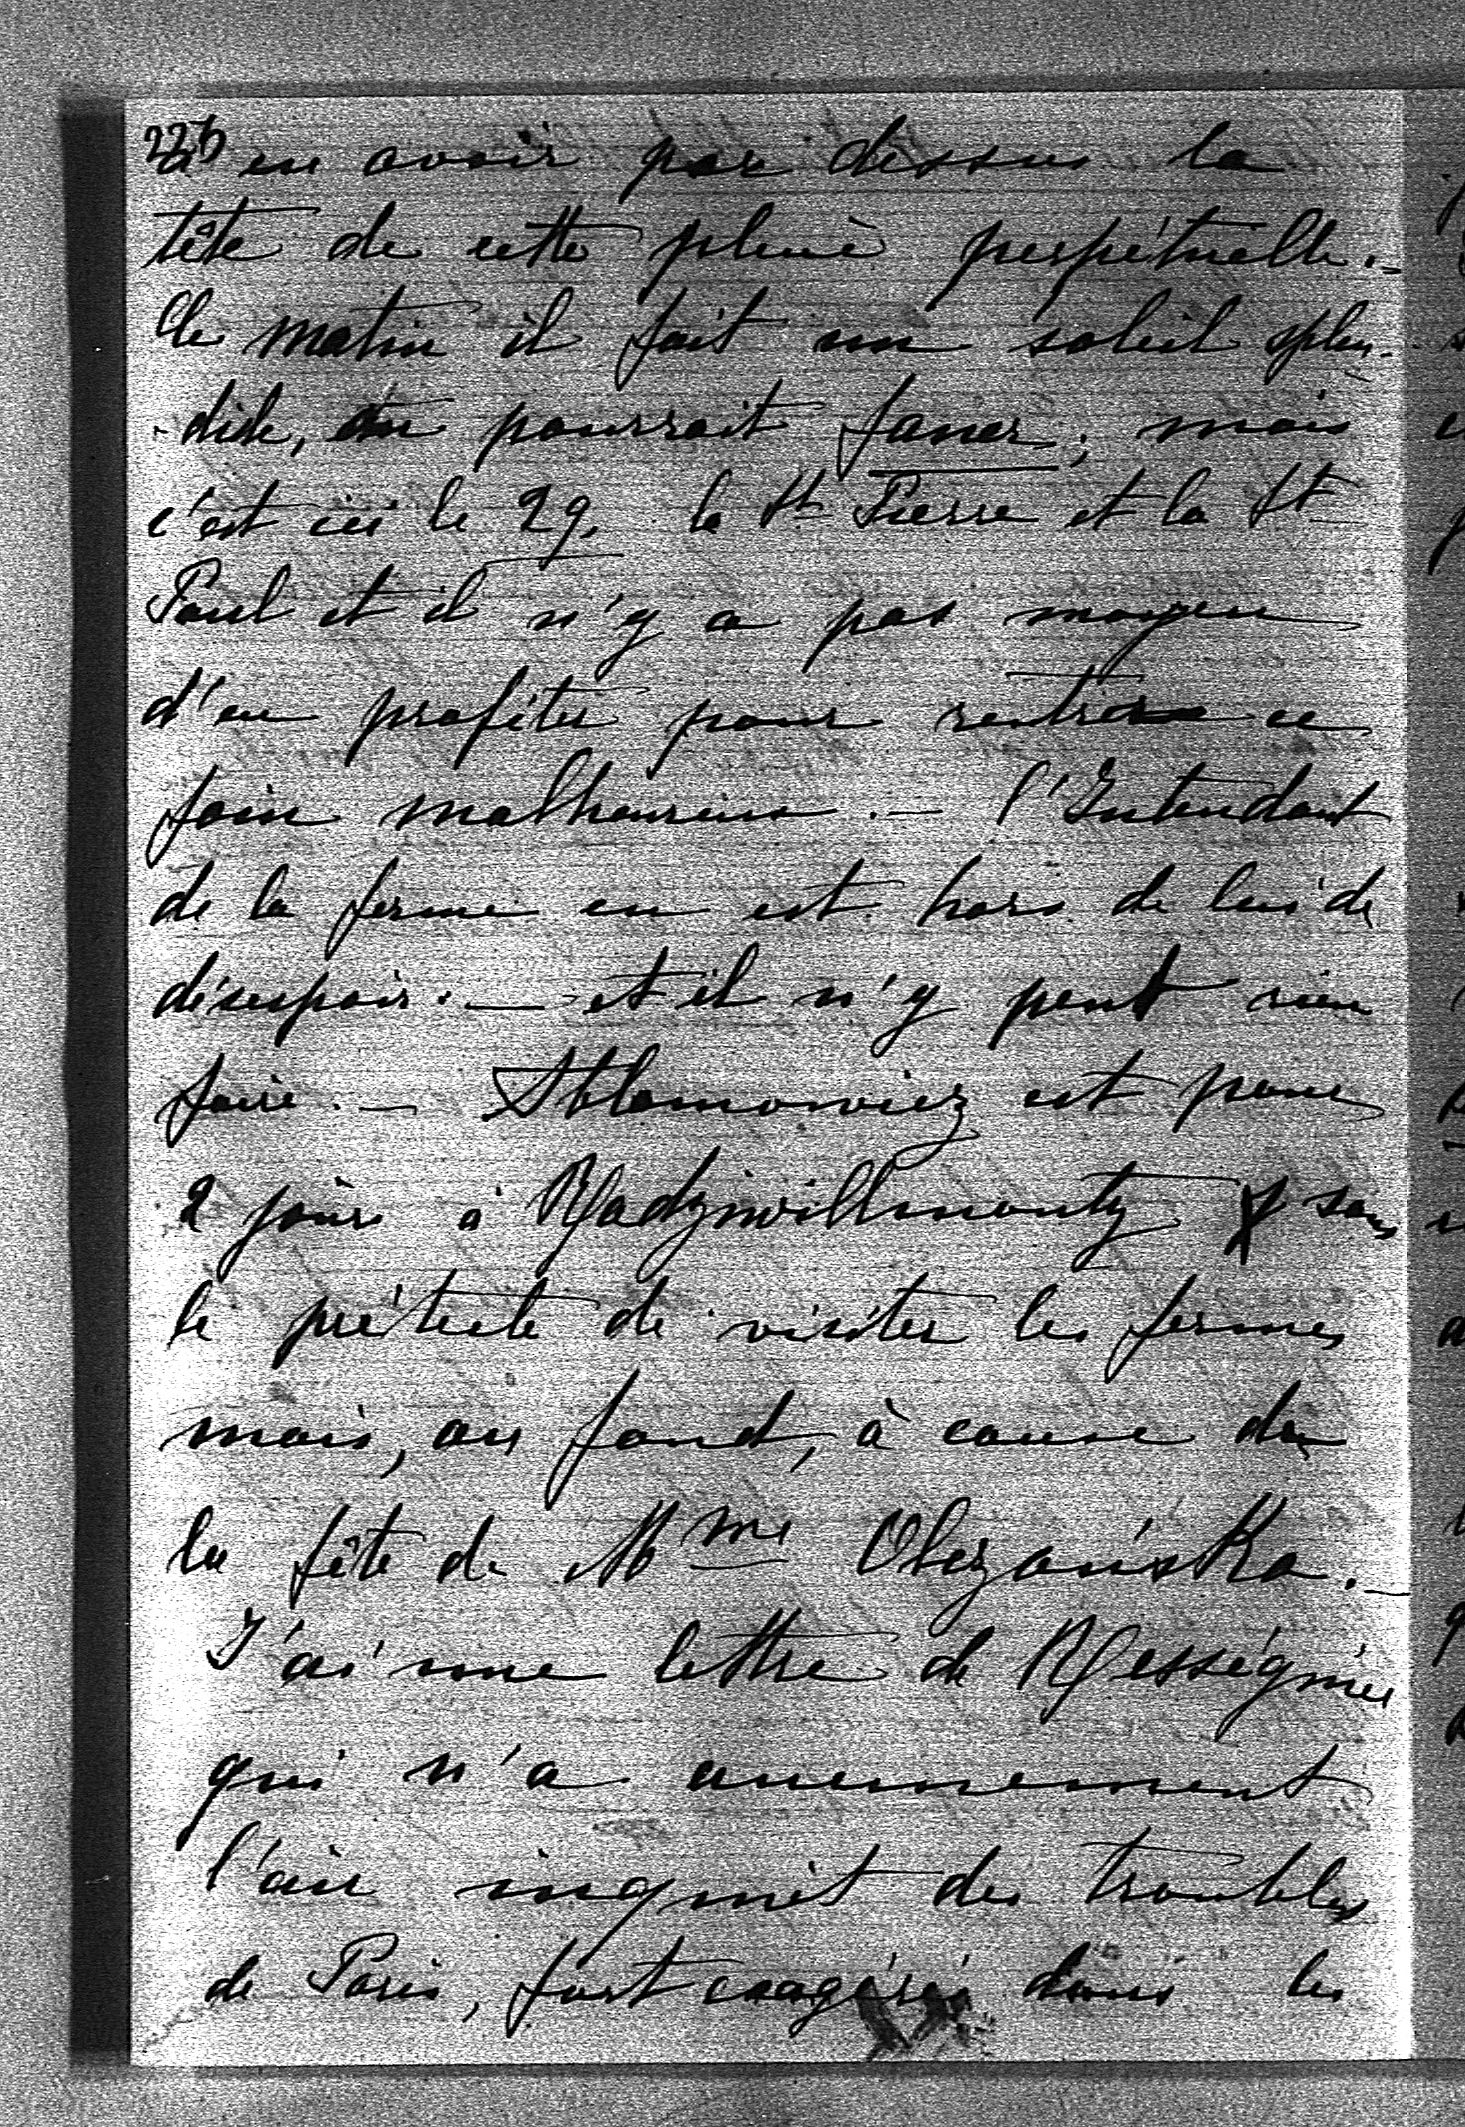 226
à en avoir par dessus la
tête de cette pluie perpétuelle. –
Le matin il fait un soleil splen-
-dide, on pourrait faner; mais
c'est ici le 29, la St Pierre et la St
Paul et il n'y a pas moyen
d'en profiter pour rentrer ce
foin malheureux. – l'Intendant
de la ferme en est hors de lui de
désespoir. – et il n'y peut rien
faire. – Ablamowicz est pour
2 jours à Radziwillmonty sous
le prétexte de visiter les fermes
mais, au fond, à cause de
la fête de Mme Olszańska. –
J'ai une lettre de Rességuier
qui n'a aucunement
l'air inquiet des troubles
de Paris, fort exagérés dans les